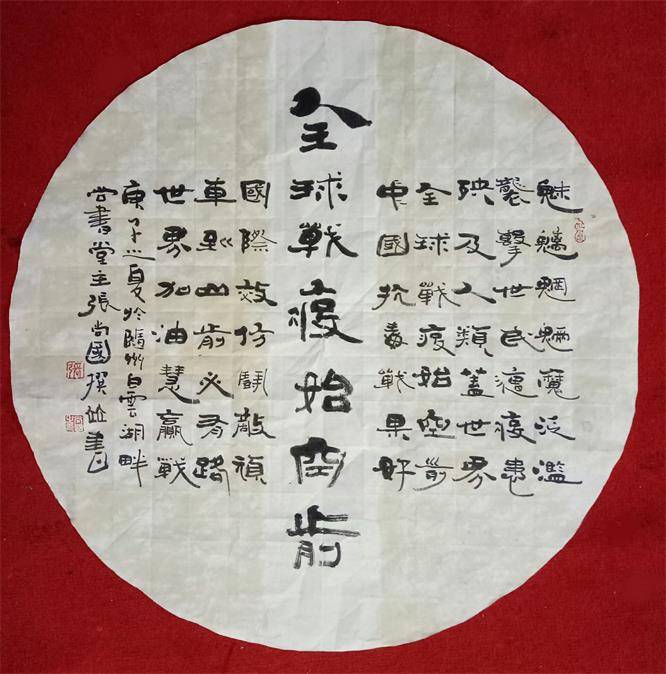 魅魑魍魎魔泛濫
襲擊世民瘟疫患
殃及人類蓋世界
全球戰疫始空前
中國抗毒戰果好
全球戰疫始空前
國際效仿鬭敵頑
車到山前必有路
世界加油慧贏戰
庚子之夏於隨州白雲湖畔
尚書堂主張尚國撰並書